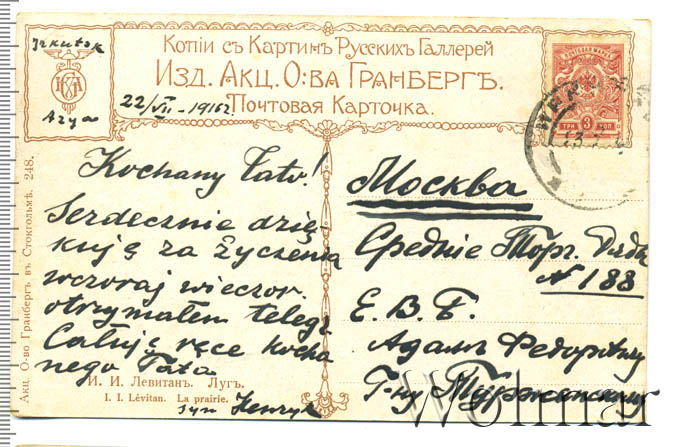 Irkutsk
Azya
Копіи съ Картинъ Русскихъ Галлерей
Изд. Акц. О:ва Гранбергъ.
Почтовая Карточка.
22/VII - 1916 r.
ПОЧТОВАЯ МАРКА
ТРИ 3 КОП
Акц. О-во Гранбергъ въ Стокгольмѣ. 248.
Kochany Tato!
Serdecznie dzię-
kuję za życzenia
wczoraj wieczor.
otrzymałem telegr.
Całuję ręce kocha
nego Tata
syn Henryk
И. И. Левитанъ. Лугъ.
I. I. Lévitan. La prairie.
Москва
Среднiе Торг. Ряды
N 188
Е. В. Б.
Адамъ Федоровичу
Г-ну
Wolmar